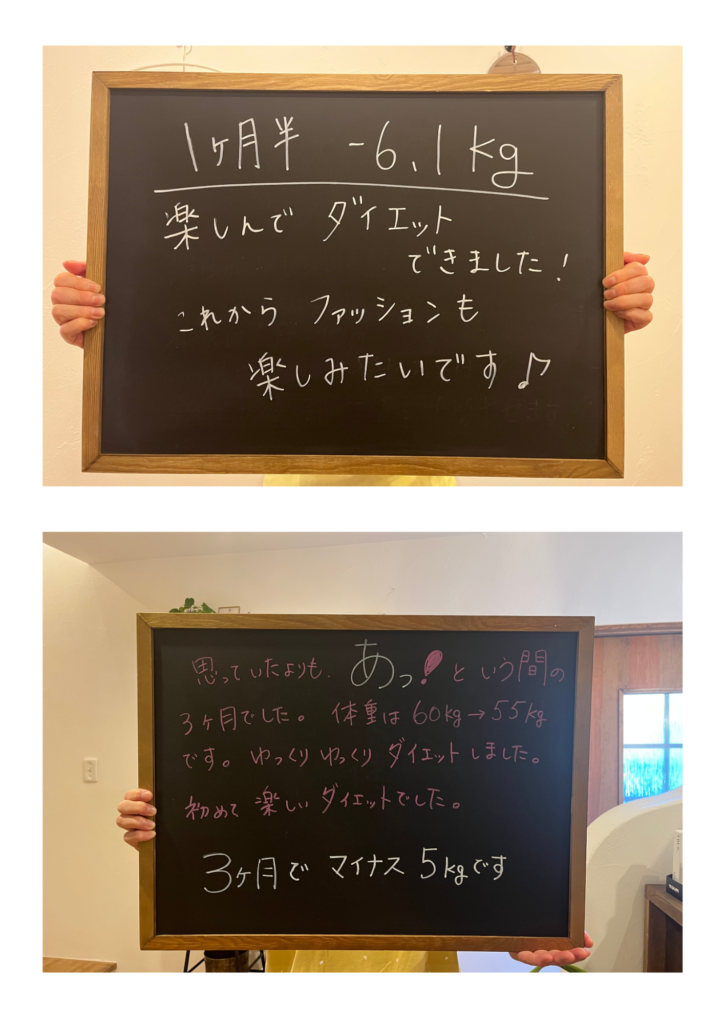 1ヶ月半 -6.1kg
楽しんで ダイエット
できました!
これから ファッションも
楽しみたいです♪
思っていたよりも、あっ!という間の
3ヶ月でした。体重は60kg→55kg
です。ゆっくりゆっくり ダイエットしました。
初めて 楽しいダイエットでした。
3ヶ月で マイナス 5kgです